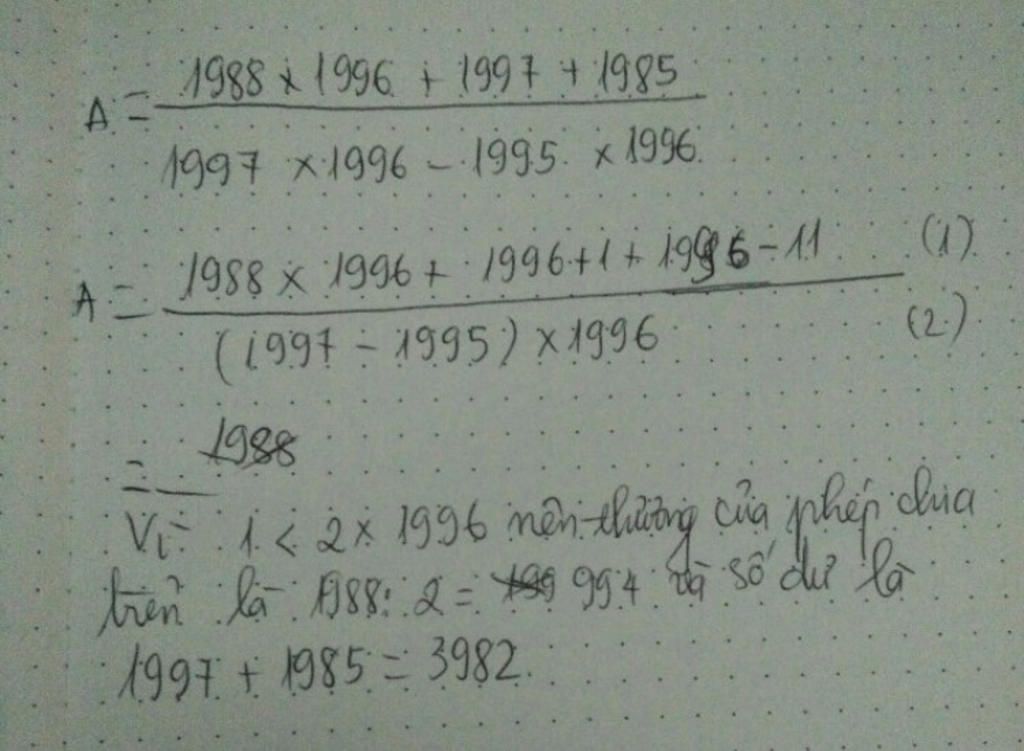 A = 1988 x 1996 + 1997 + 1985
1997 x 1996 - 1995 x 1996
A = 1988 x 1996 + 1996 + 1 + 1996 - 11 (1)
(1997 - 1995) x 1996 (2)
= 1988
Vì 1 < 2 x 1996 nên thương của phép chia
trên là 1988 : 2 = 199 994 và số dư là
1997 + 1985 = 3982